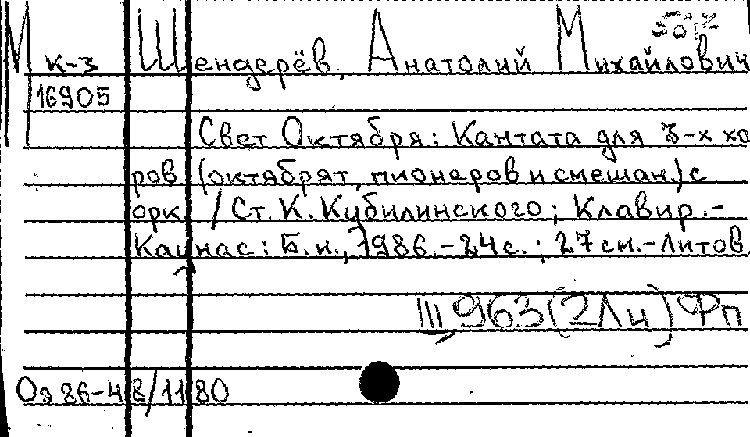 М К-3 Шендерёв, Анатолий Михайлович
16905
Свет Октября: Кантата для 3-х хо
ров (октябрят, пионеров и смешан.) с
орк. / Ст. К. Кубилинского; Клавир.-
Каунас: Б.и., 1986.-24 с.; 27 см.-Литов.
III, 963(2Ли) Фп
Оэ 86-48/1180